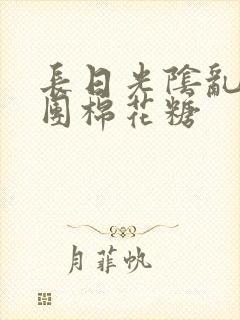 長日光陰亂
團棉花糖
月菲帆